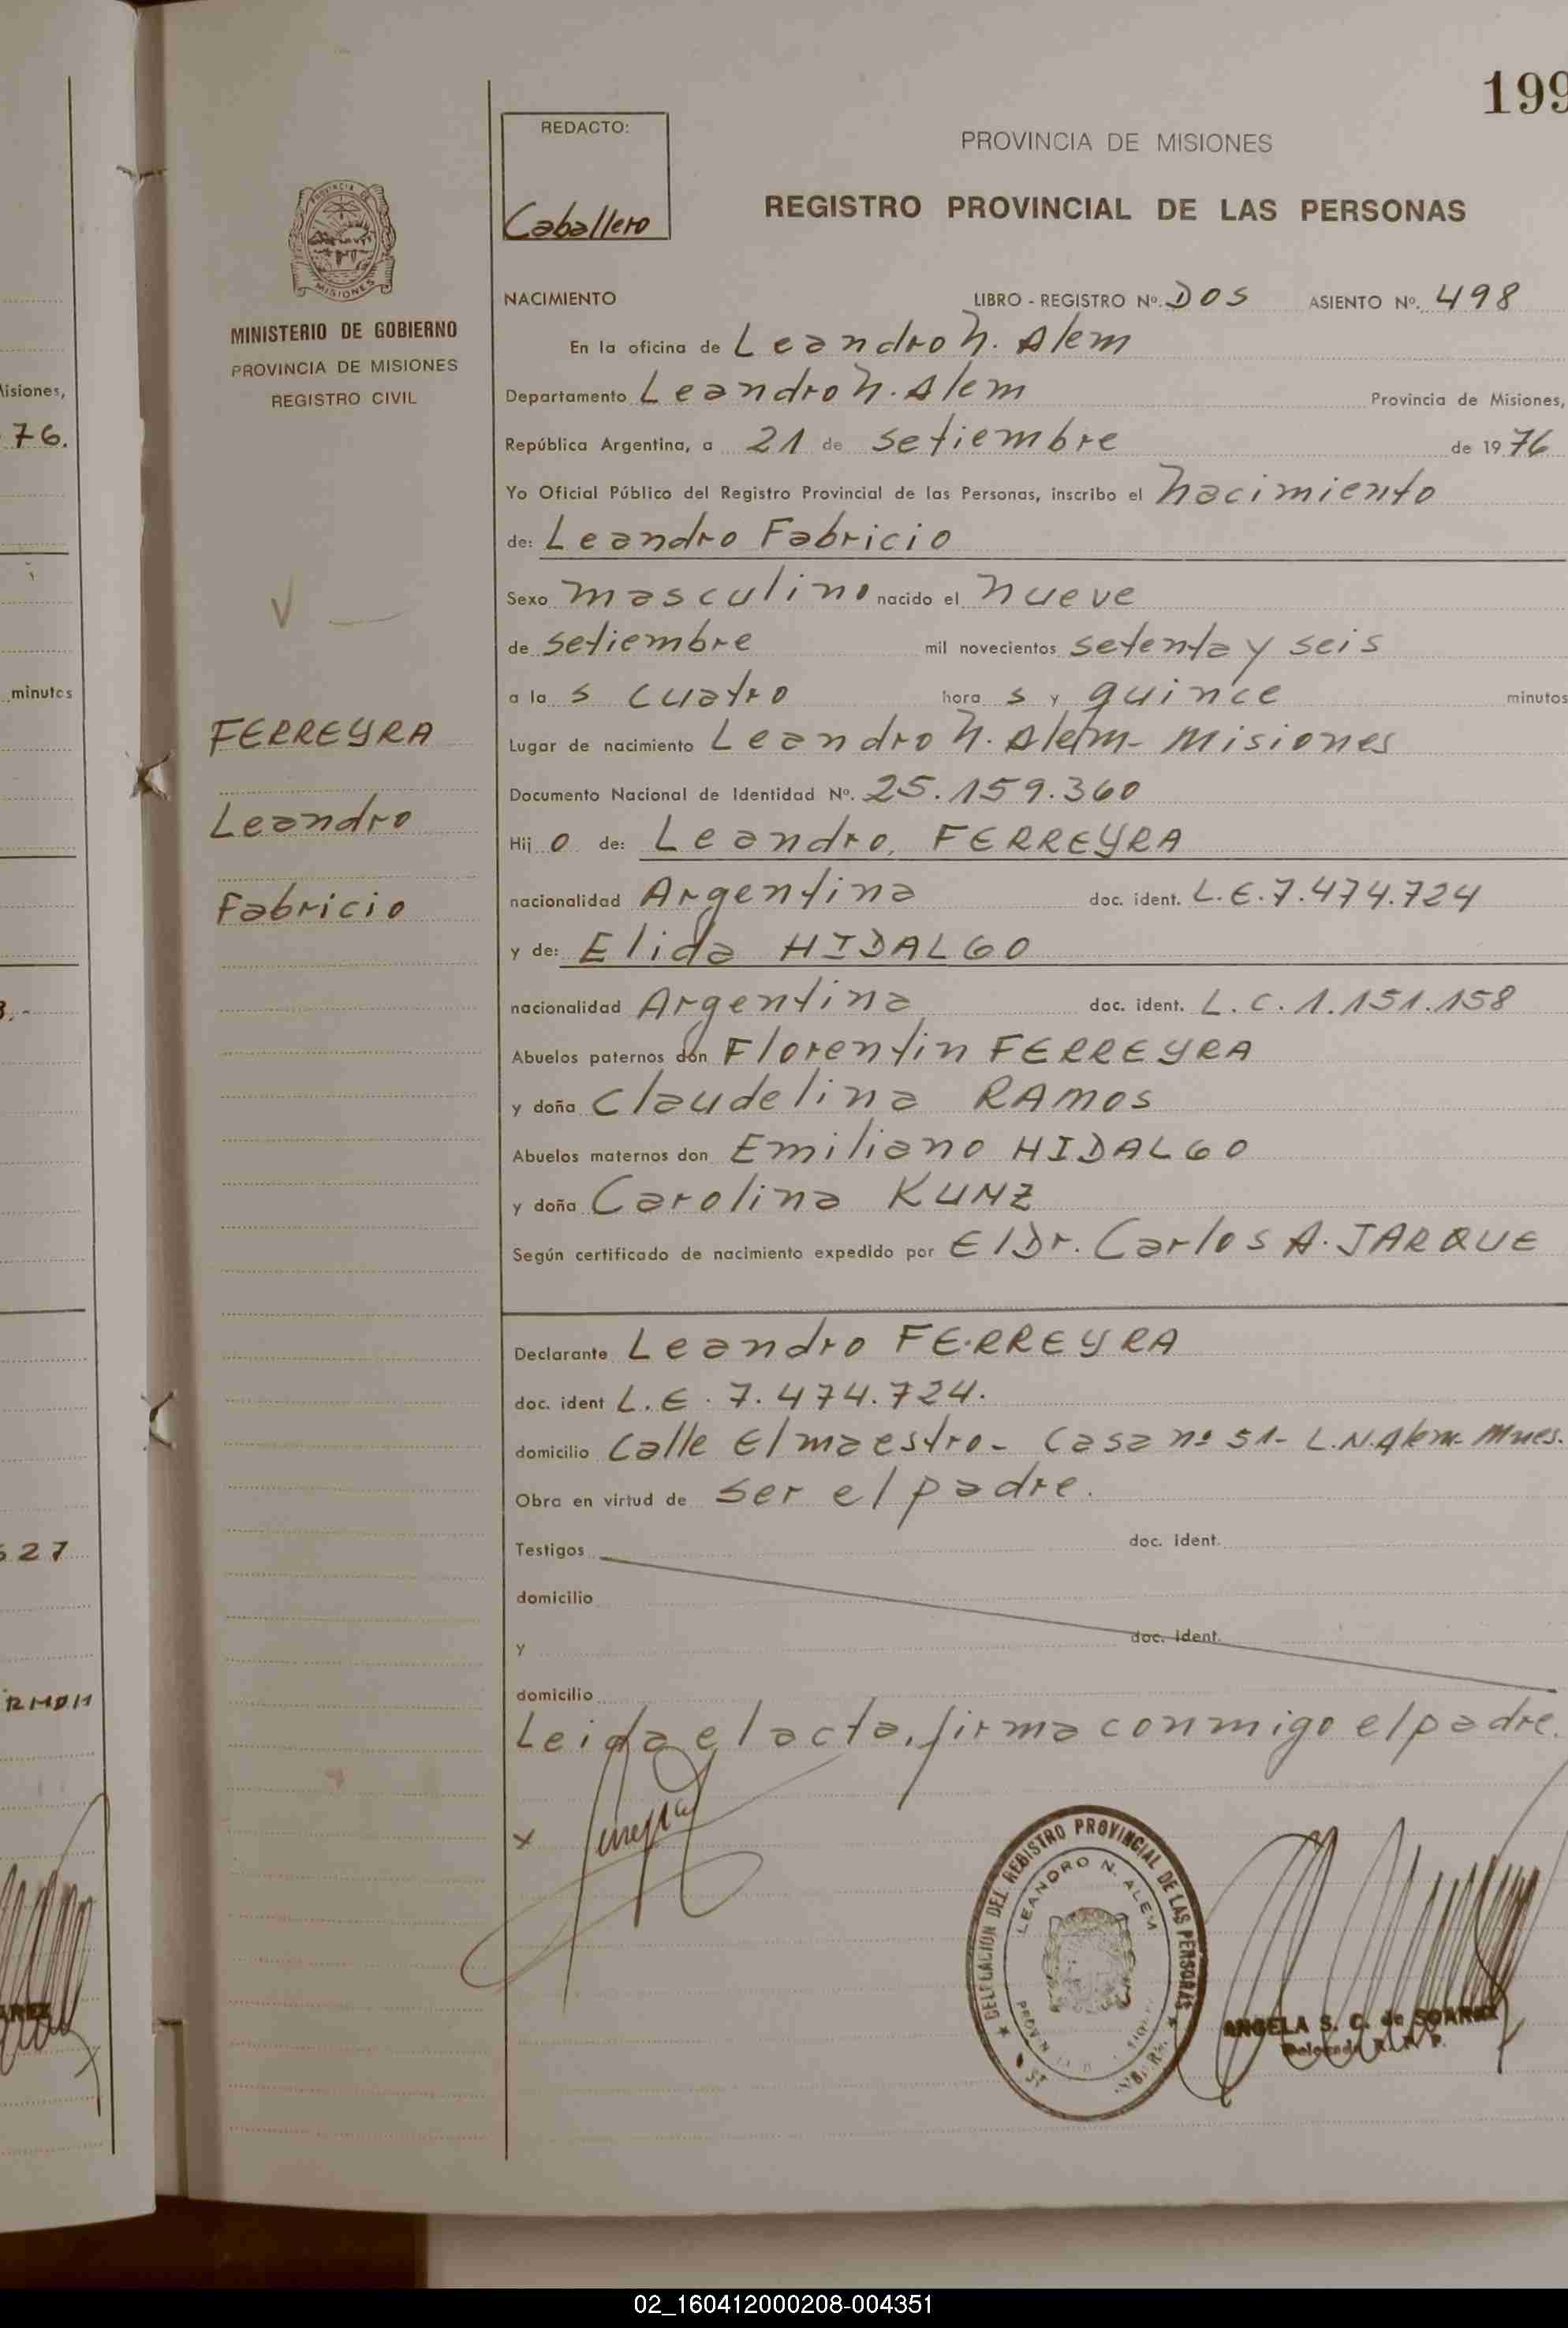 199
REDACTO:
Caballero
PROVINCIA DE MISIONES
REGISTRO PROVINCIAL DE LAS PERSONAS
MINISTERIO DE GOBIERNO
PROVINCIA DE MISIONES
REGISTRO CIVIL
NACIMIENTO LIBRO - REGISTRO Nº. DOS ASIENTO Nº. 498
En la oficina de Leandro N. Alem
Departamento Leandro N. Alem Provincia de Misiones,
República Argentina, a 21 de setiembre de 1976
Yo Oficial Público del Registro Provincial de las Personas, inscribo el nacimiento
de: Leandro Fabricio
Sexo masculino nacido el nueve
de setiembre mil novecientos setenta y seis
a las cuatro horas y quince minutos
Lugar de nacimiento Leandro N. Alem - Misiones
Documento Nacional de Identidad Nº. 25.159.360
Hijo de: Leandro, FERREYRA
nacionalidad Argentina doc. ident. L.E.7.474.724
y de: Elida HIDALGO
nacionalidad Argentina doc. ident. L.C.1.151.158
Abuelos paternos don Florentin FERREYRA
y doña Claudelina RAMOS
Abuelos maternos don Emiliano HIDALGO
y doña Carolina KUNZ
Según certificado de nacimiento expedido por El Dr. Carlos A. JARQUE
FERREYRA
Leandro
Fabricio
Declarante Leandro FERREYRA
doc. ident L.E. 7.474.724.
domicilio Calle El maestro - Casa nº 51 - L.N.Alem - Mnes.
Obra en virtud de ser el padre.
Testigos doc. ident.
domicilio
y doc. ident.
domicilio
Leida el acta, firma conmigo el padre.
x
DELEGACION DEL REGISTRO PROVINCIAL DE LAS PERSONAS
LEANDRO N. ALEM
ANGELA S. C. de
Misiones,
76.
minutos
627
02_160412000208-004351